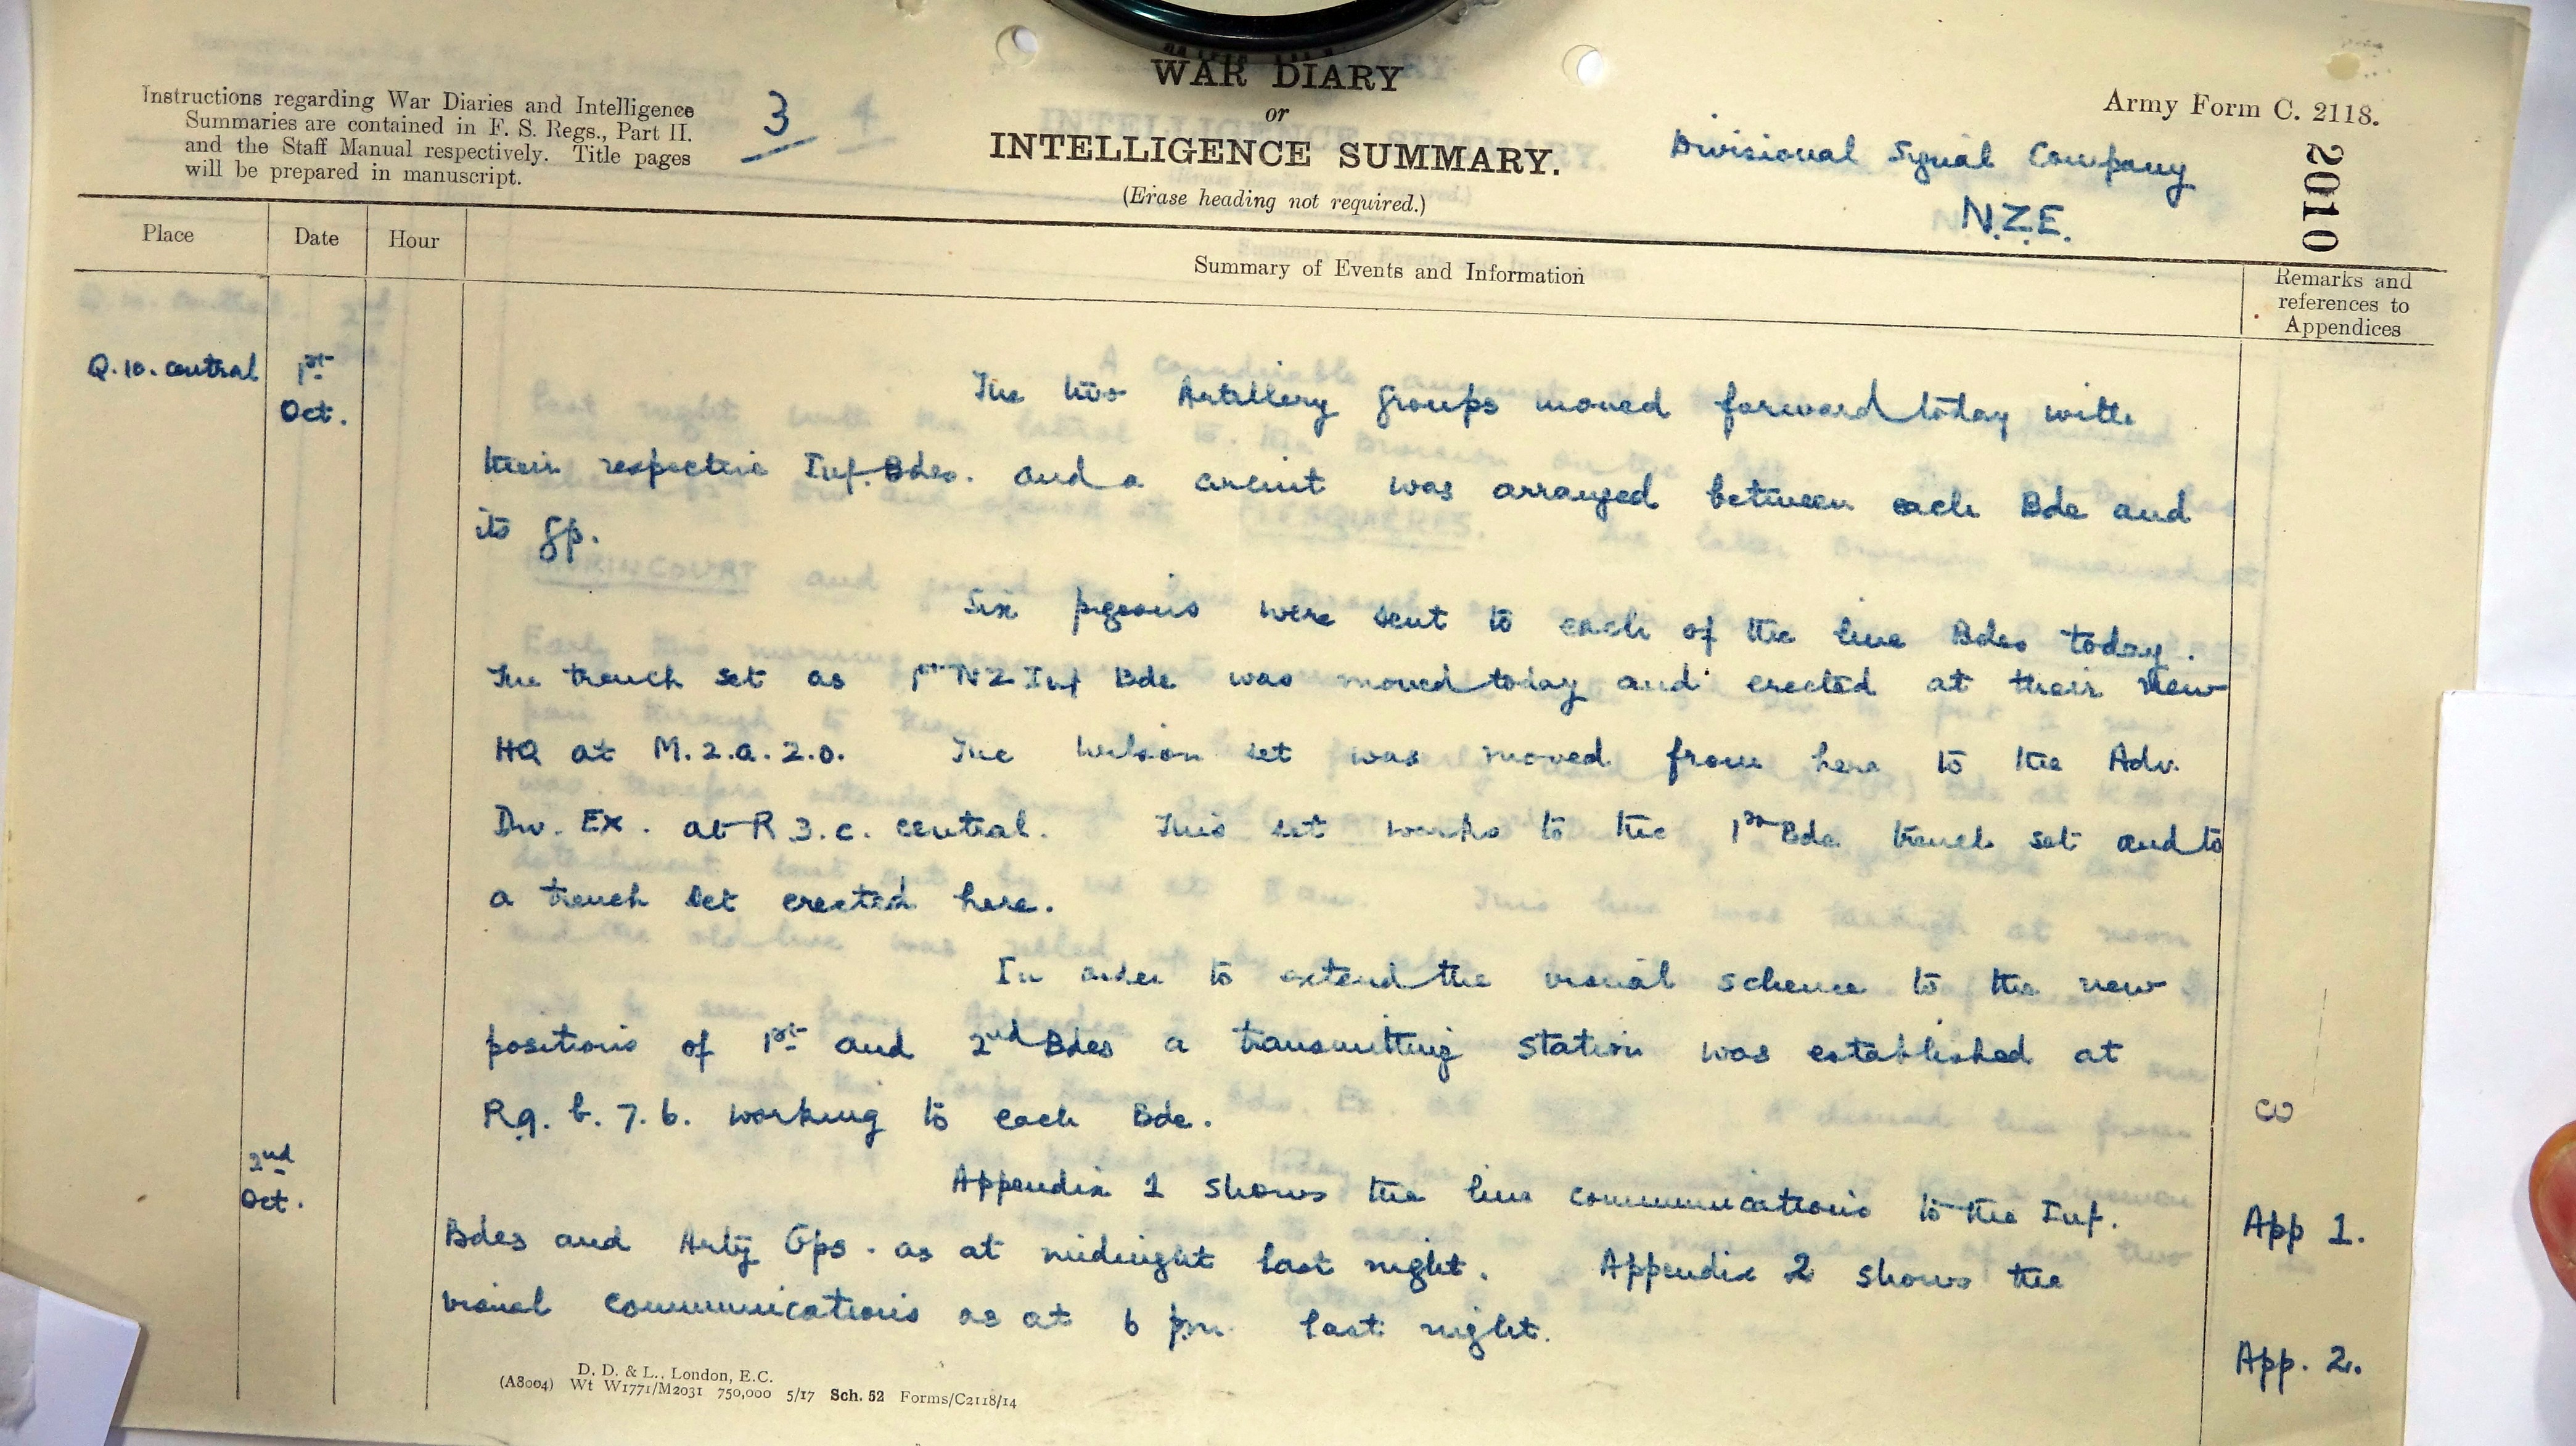 WAR DIARY
or
INTELLIGENCE SUMMARY.
(Erase heading not required.)
Instructions regarding War Diaries and Intelligence
Summaries are contained in F. S. Regs., Part II.
and the Staff Manual respectively. Title pages
will be prepared in manuscript.
3 4
Army Form C. 2118.
Divisional Signal Company
N.Z.E.
2010
Place Date Hour
Summary of Events and Information
Remarks and
references to
Appendices
Q.10. central 1st
Oct.
The two Artillery Groups moved forward today with
their respective Inf. Bdes. and a circuit was arranged between each Bde and
its Gp.
Six pigeons were sent to each of the line Bdes today.
The trench set as 1st NZ Inf Bde was moved today and erected at their new
HQ at M.2.a.2.0. The Wilson set was moved from here to the Adv.
Div. Ex. at R 3.c. central. This set works to the 1st Bde trench set and to
a trench set erected here.
In order to extend the visual scheme to the new
positions of 1st and 2nd Bdes a transmitting station was established at
R9. b. 7.6. working to each Bde.
3
2nd
Oct.
Appendix 1 shows the line communications to the Inf.
App 1.
Bdes and Arty Gps. as at midnight last night. Appendix 2 shows the
visual communications as at 6 pm. last night.
App. 2.
D. D. & L., London, E.C.
(A8004) Wt W1771/M2031 750,000 5/17 Sch. 52 Forms/C2118/14